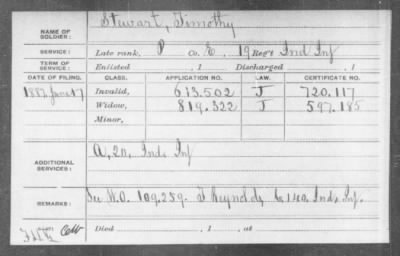 NAME OF SOLDIER: Stewart, Timothy
SERVICE: Late rank, P Co. E, 19 Reg't Ind Inf
TERM OF SERVICE: Enlisted , 1 Discharged , 1
DATE OF FILING. CLASS. APPLICATION NO. LAW. CERTIFICATE NO.
1887 June 17 Invalid, 613.502 J 720.117
Widow, 819.322 J 597.185
Minor,
ADDITIONAL SERVICES: A, 20, Ind. Inf
REMARKS: See W.O. 109.259. T Reynolds Co 140. Ind. Inf.
Died , 1 , at